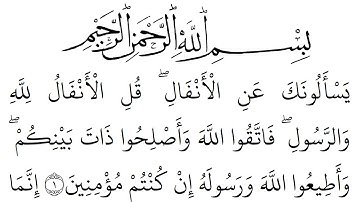 بِسْمِ اللَّهِ الرَّحْمَٰنِ الرَّحِيمِ
يَسْأَلُونَكَ عَنِ الْأَنْفَالِ ۖ قُلِ الْأَنْفَالُ لِلَّهِ
وَالرَّسُولِ ۖ فَاتَّقُوا اللَّهَ وَأَصْلِحُوا ذَاتَ بَيْنِكُمْ ۖ
وَأَطِيعُوا اللَّهَ وَرَسُولَهُ إِنْ كُنْتُمْ مُؤْمِنِينَ ۝١ إِنَّمَا